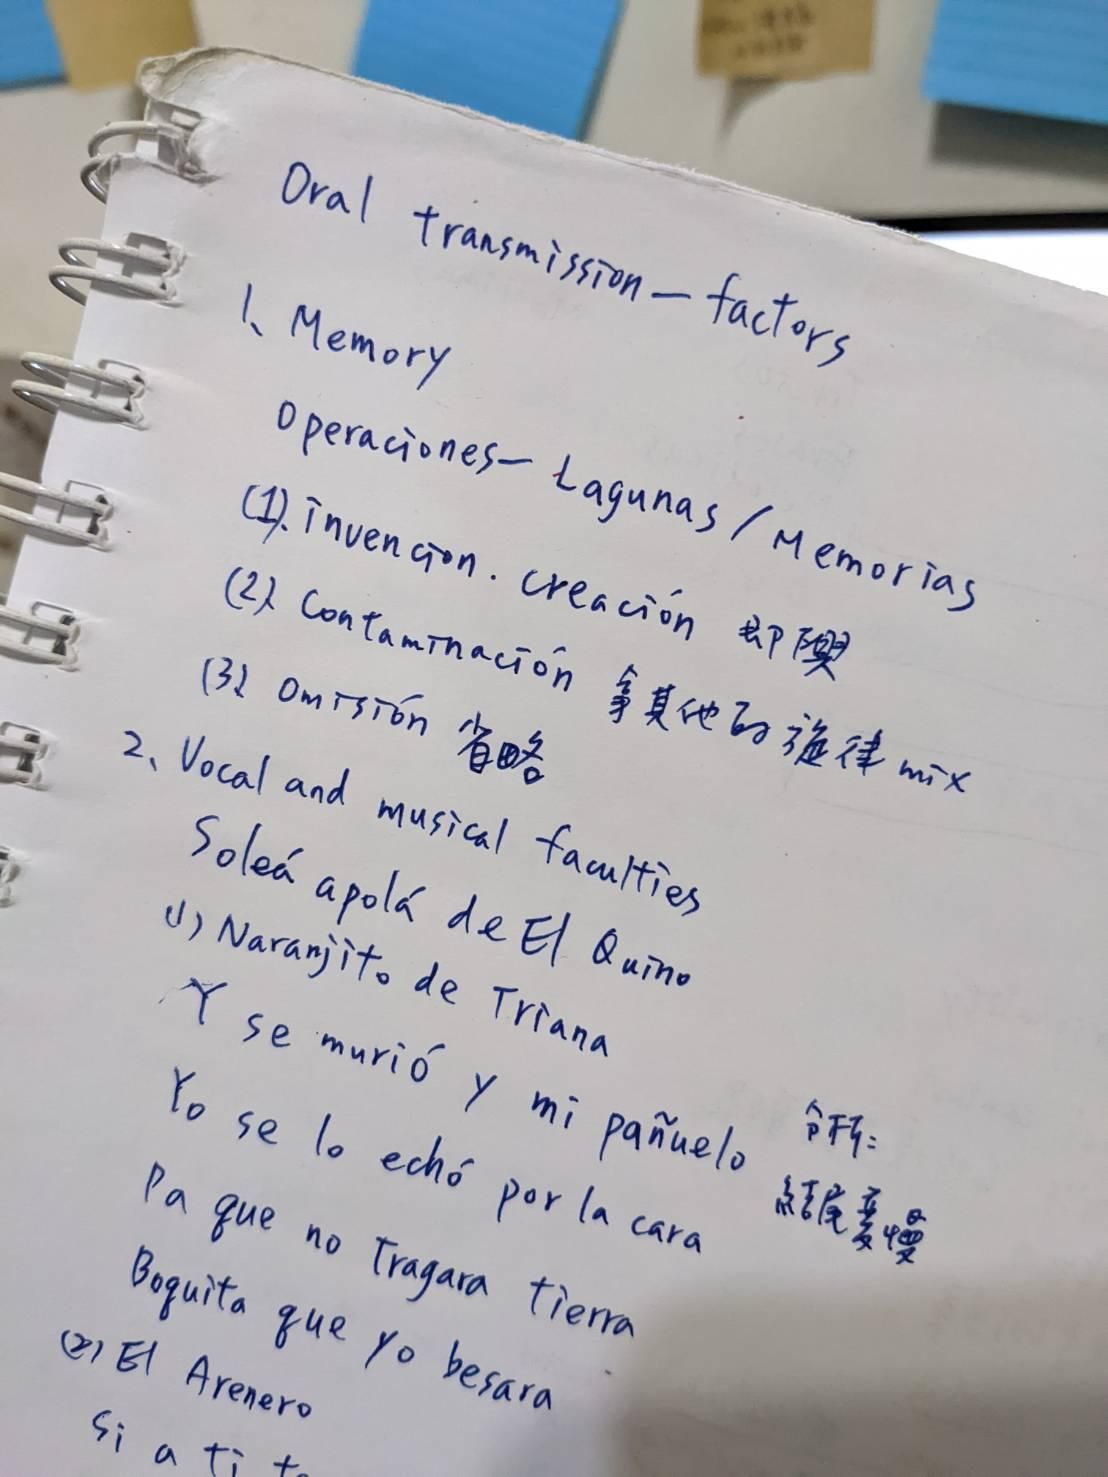 Oral transmission — factors
1、Memory
Operaciones — Lagunas / Memorias
(1). invencion. creación 即興
(2) Contaminación 拿其他的旋律 mix
(3) Omisión 省略
2、Vocal and musical faculties
Soleá apolá de El Quino
(1) Naranjito de Triana
Y se murió y mi pañuelo
Yo se lo echó por la cara
結尾變慢
Pa que no Tragara tierra
Boquita que yo besara
(2) El Arenero
Si a ti